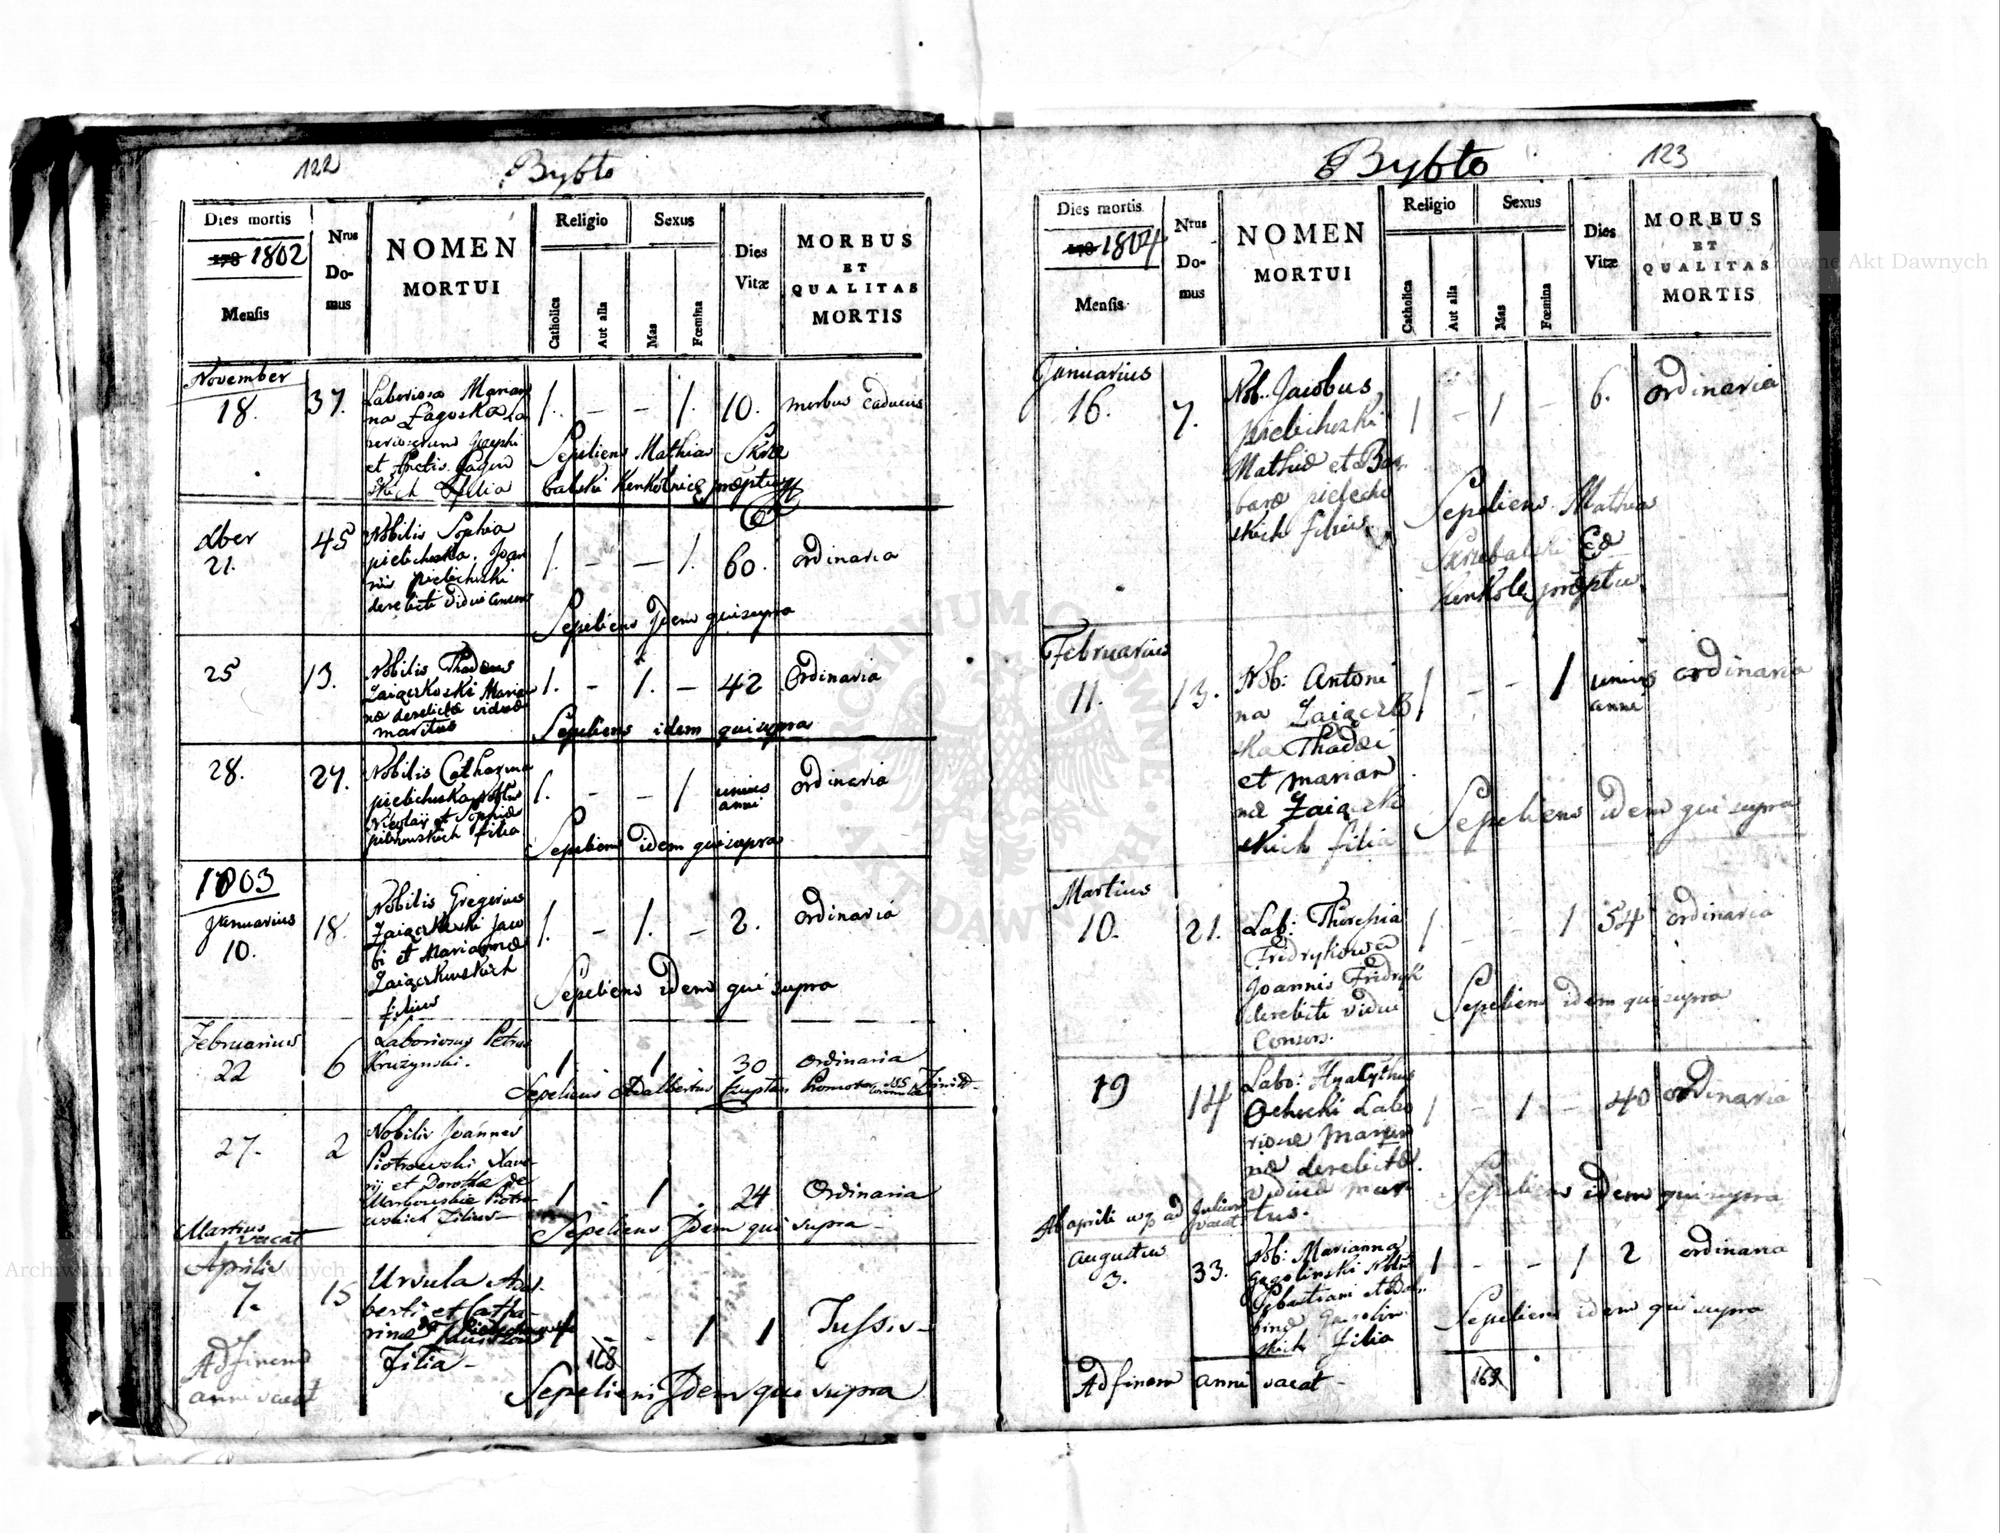 122
Bybło
Dies mortis
178 1802
Mensis
Nrus
Do-
mus
NOMEN
MORTUI
Religio
Catholica
Aut alia
Sexus
Mas
Fœmina
Dies
Vitæ
MORBUS
ET
QUALITAS
MORTIS
November
18.
37.
Laboriosa Marian
na
et
filia
1. - - 1. 10.
morbus caducus
Sepeliens Mathias Skrze
balski
45
21.
Nobilis Sophia
pielichoska. Joan
nis pielichoski
derelicti vidui
1. - - 1. 60.
ordinaria
Sepeliens Idem qui supra
25
13.
Nobilis Thadeus
Zaiączkoski Marian
næ derelictæ viduæ
maritus
1. - 1. - 42
Ordinaria
Sepeliens idem qui supra
28.
27.
Nobilis Catharina
pielichoska
Nicolaij et Sophiæ
filia
1. - - 1
unius
anni
ordinaria
Sepeliens idem qui supra
1803
Januarius
10.
18.
Nobilis Gregorius
Zaiączkoski Jaco
bi et Mariannæ
Zaiączkowskich
filius
1. - 1. - 2.
ordinaria
Sepeliens idem qui supra
Februarius
22
6
Laboriosus Petrus
Kruzynski.
1. 1. 30
Ordinaria
Sepeliens Adalbertus
27.
2
Nobilis Joannes
Piotrowski Xave-
rij et Dorothæ de
filius
1 - 1 . 24
Ordinaria
Sepeliens Idem qui supra
Martius
vacat
Aprilis
7.
15
Ursula Adal-
berti et Catha-
rinæ
Filia
- 1 1
Tussis
168
Sepeliens Idem qui supra
Ad finem
anni vacat
Bybło
123
Dies mortis
178 1804
Mensis
Nrus
Do-
mus
NOMEN
MORTUI
Religio
Catholica
Aut alia
Sexus
Mas
Fœmina
Dies
Vitæ
MORBUS
ET
QUALITAS
MORTIS
Januarius
16.
7.
Nob. Jacobus
pielichoski
Mathiæ et Bar
baræ pielicho
skich filius
1 - 1 - 6.
ordinaria
Sepeliens Mathias
Skrzebalski
Februarius
11.
13.
Nob: Antoni
na Zaiączko
ska Thadæi
et marian
næ Zaiączko
skich filia
1 - - 1
unius
anni
ordinaria
Sepeliens idem qui supra
Martius
10.
21.
Lab: Theresia
Fridrykowa
Joannis Fridryk
derelicti vidui
Consors.
1 - - 1 54
ordinaria
Sepeliens idem qui supra
19
14
Labo: Hyacÿnthus
Labo
riosæ Marian
næ derelictæ
viduæ mari
tus.
1 - 1 - 40
ordinaria
Sepeliens idem qui supra
Ab aprili usq ad Julium
vacat
Augustus
3.
33.
Nob: Marianna
Gogolinski Nobilis
Sebastiani et
filia
1 - - 1 2
ordinaria
Sepeliens idem qui supra
Ad finem anni vacat
169
Archiwum Główne Akt Dawnych
Archiwum Główne Akt Dawnych
ARCHIWUM GŁÓWNE AKT DAWNYCH